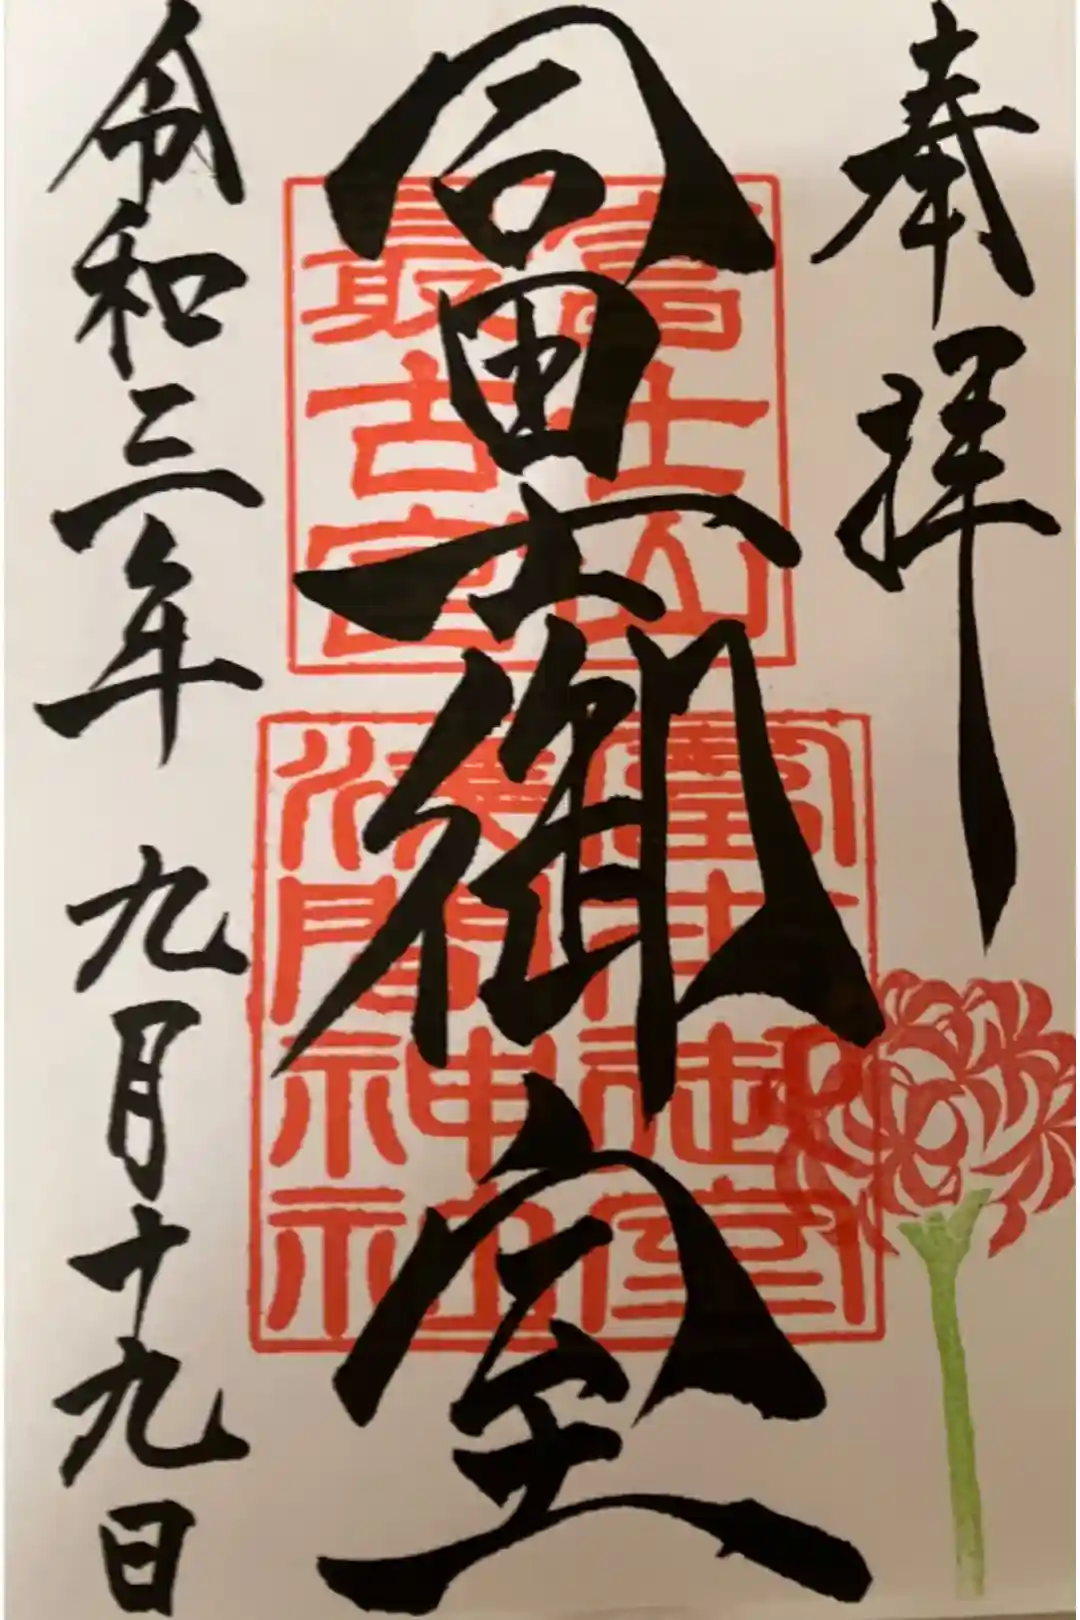 奉拝
冨士御室
富士山
最古宮
冨士御室
浅間神社
令和三年 九月十九日